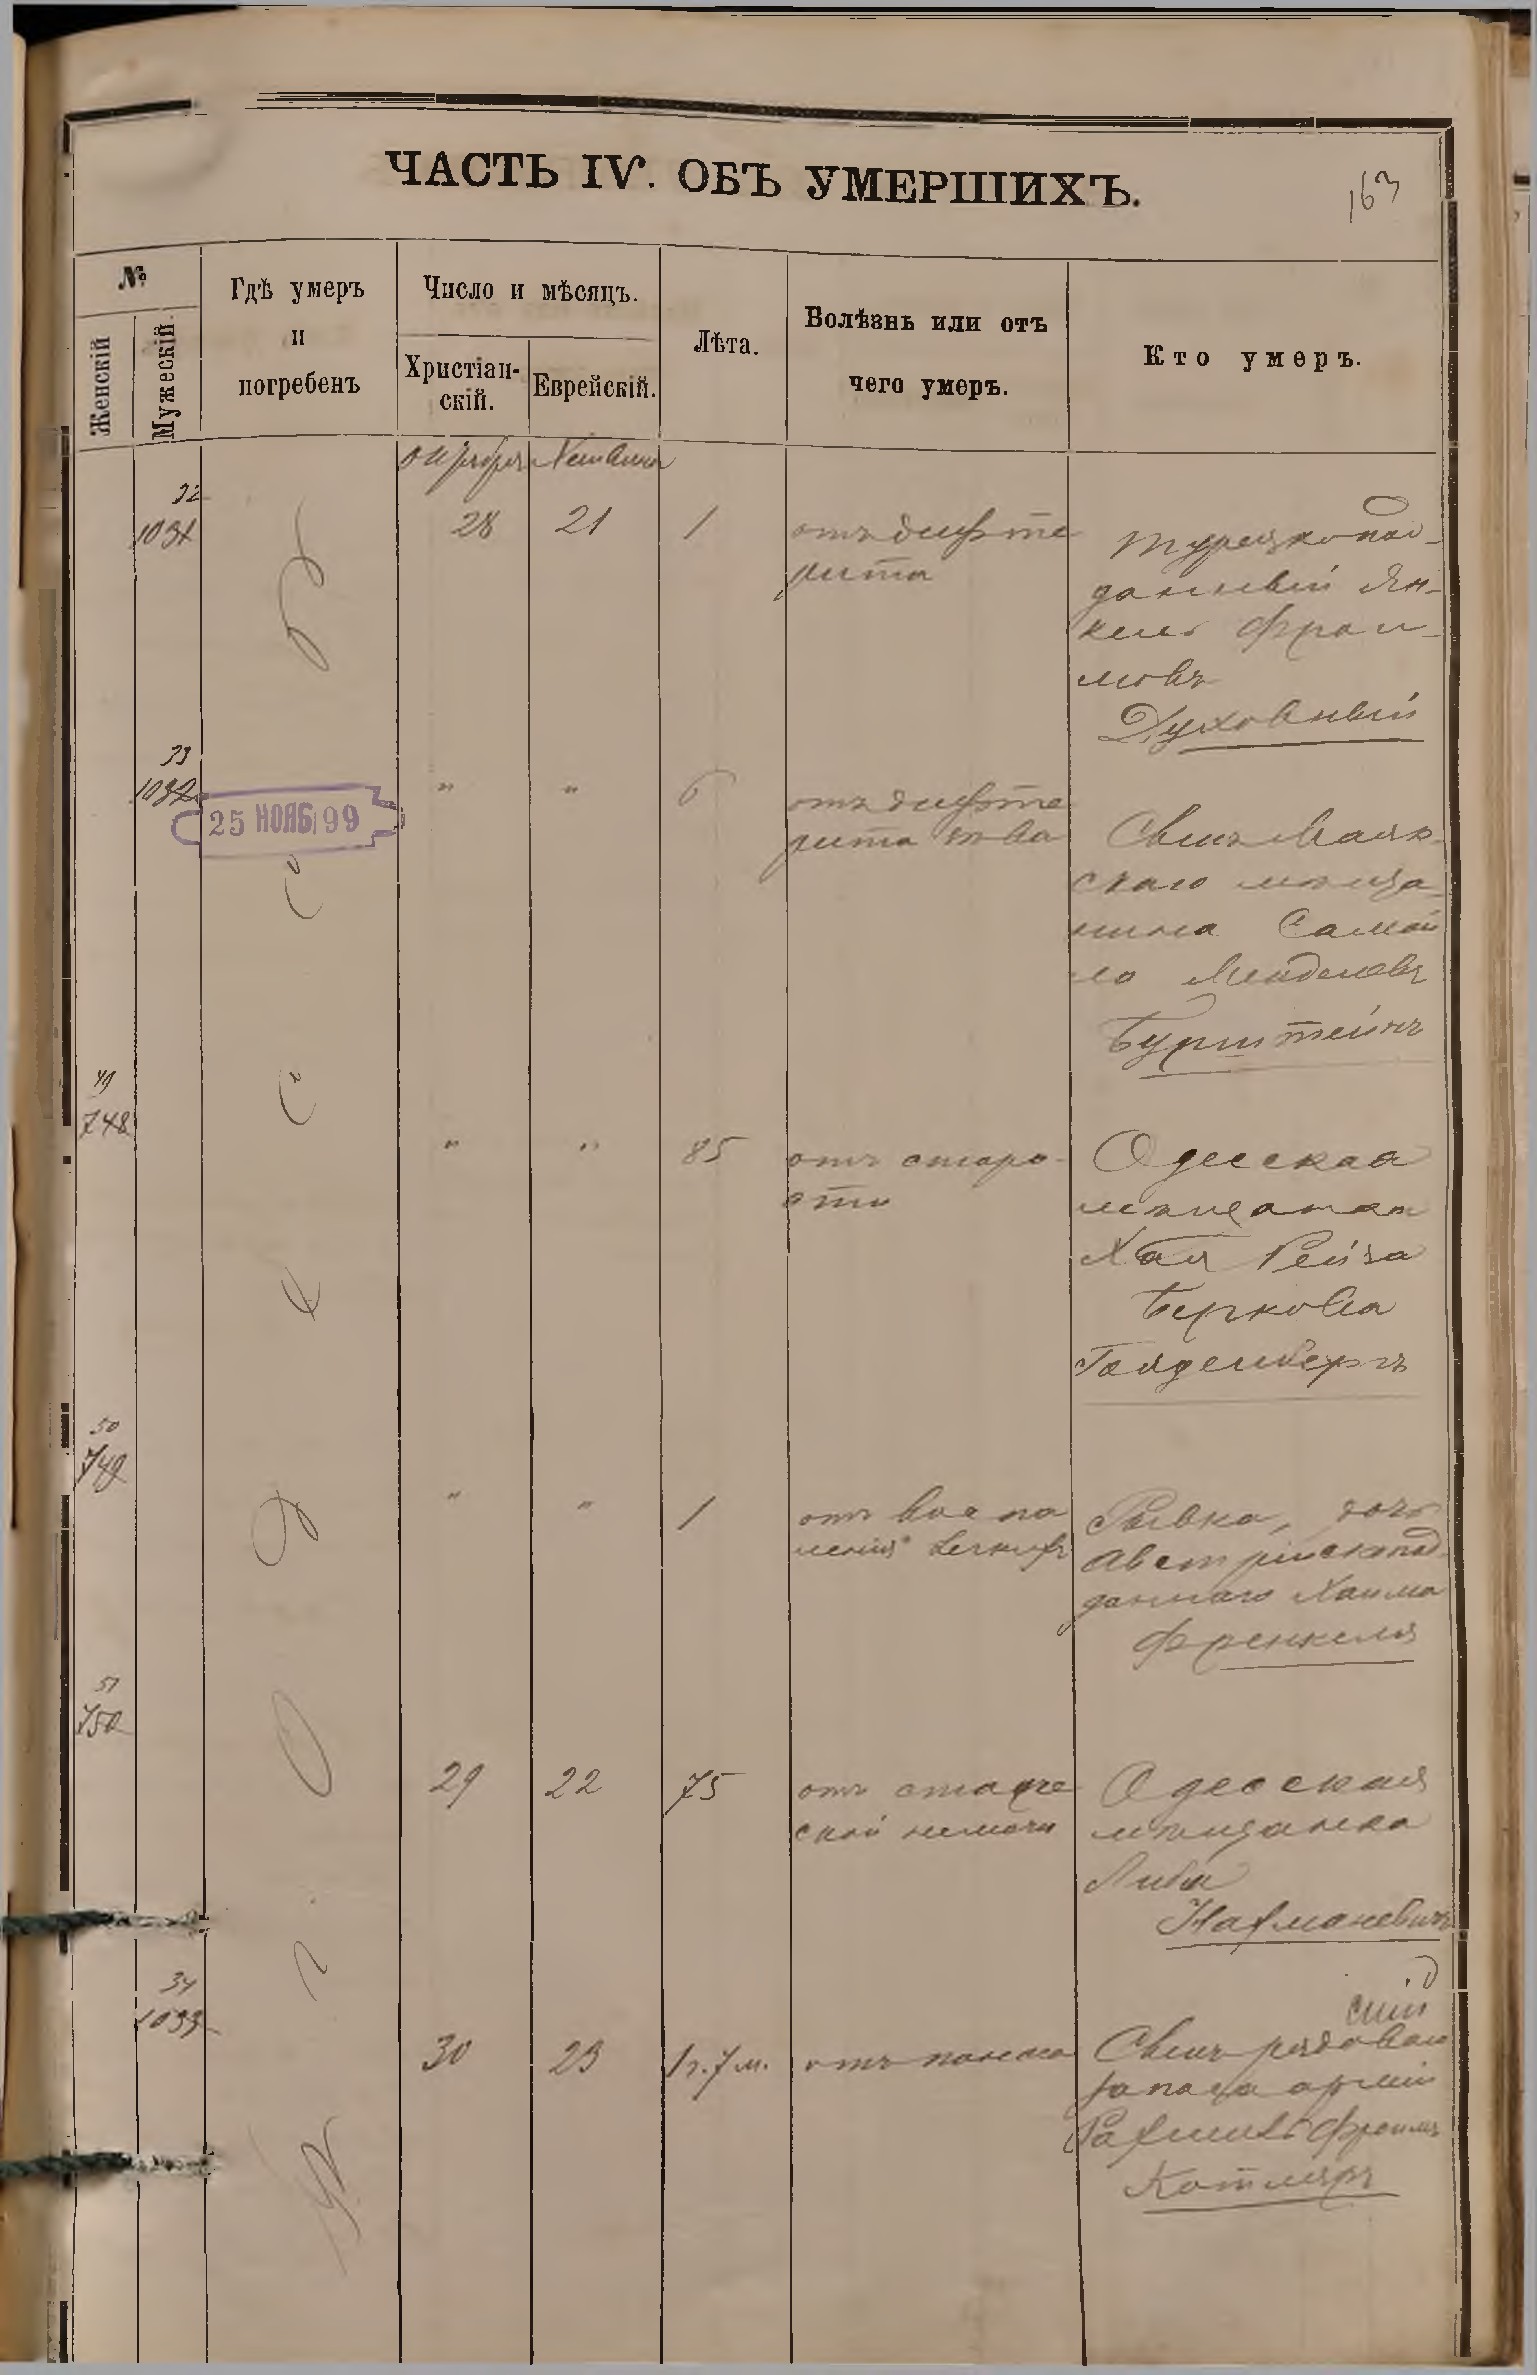 ЧАСТЬ IV. ОБЪ УМЕРШИХЪ.
163
№
Женскій
Мужескій.
Гдѣ умеръ
и
погребенъ
Число и мѣсяцъ.
Христіан-
скій.
Еврейскій.
Лѣта.
Болѣзнь или отъ
чего умеръ.
Кто умеръ.
октября Хешвана
32
1031
28 21 1
отъ дифте
рита
турецкопод-
данный Ян-
кель Фрои-
мовъ
Духовный
33
1032
25 НОЯБ 99
" " 6
отъ дифте
рита зѣва
Сынъ Маяк-
скаго мѣща-
нина Самой
ло
Бурштейнъ
49
748
" " 85
отъ старо-
сти
Одесская
мѣщанка
Хая Рейза
Беркова
Гольденбергъ
50
749
" " 1
отъ воспа
ленія легкихъ
Рывка, дочь
Австрійскопод-
даннаго Хаима
Френкеля
51
750
29 22 75
отъ старче
ской немочи
Одесская
мѣщанка
Либа
Нахмановичъ
34
1033
30 23 1 г. 7 м.
отъ поноса
Сынъ рядоваго
запаса арміи
Рахмиль Фроимъ
Котляръ
Одесса